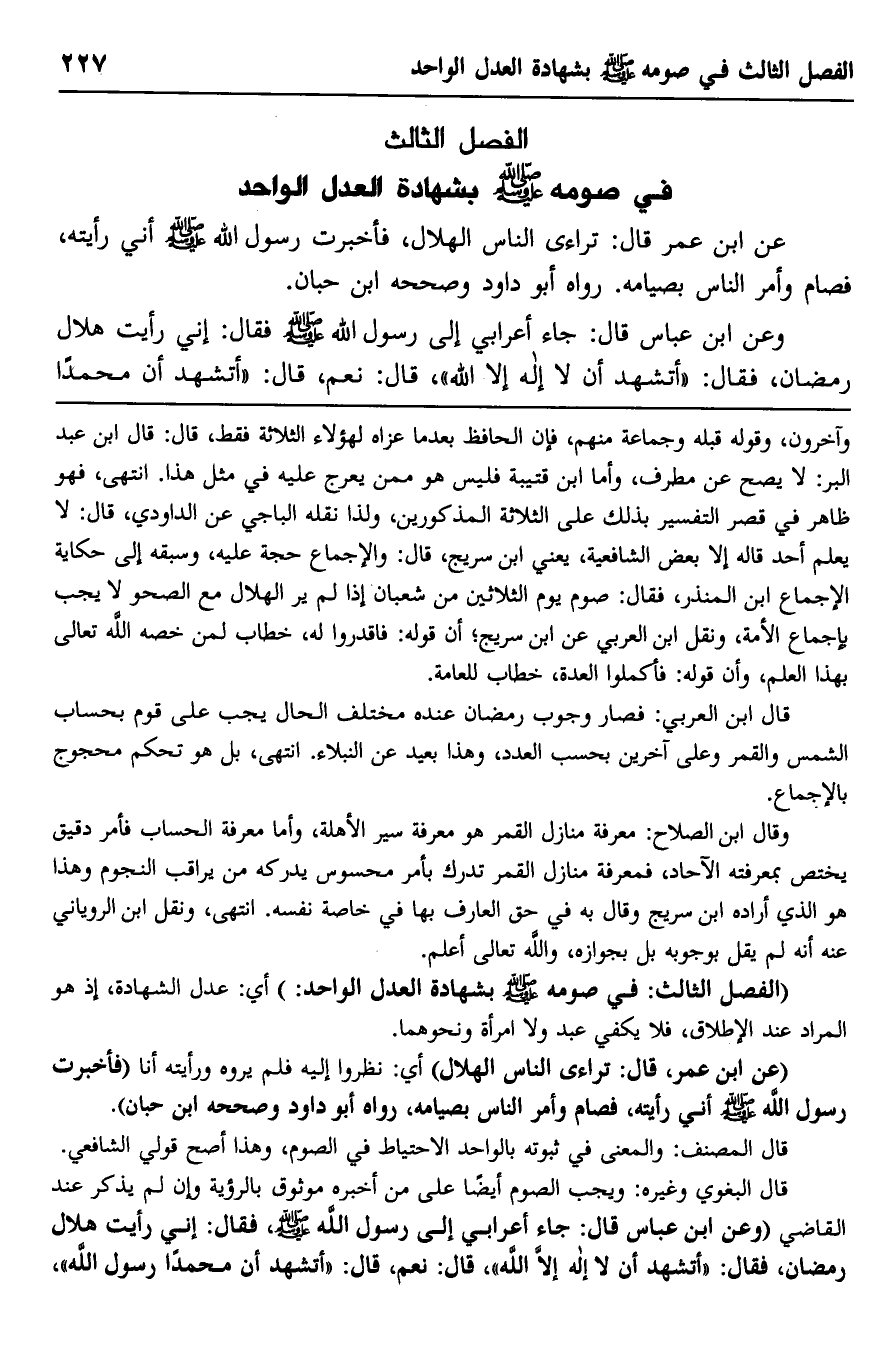 الفصل الثالث في صومه ﷺ بشهادة العدل الواحد ٢٢٧
الفصل الثالث
في صومه ﷺ بشهادة العدل الواحد
عن ابن عمر قال: تراءى الناس الهلال، فأخبرت رسول الله ﷺ أني رأيته،
فصام وأمر الناس بصيامه. رواه أبو داود وصححه ابن حبان.
وعن ابن عباس قال: جاء أعرابي إلى رسول الله ﷺ فقال: إني رأيت هلال
رمضان، فقال: «أتشهد أن لا إلٰه إلا الله»، قال: نعم، قال: «أتشهد أن محمدًا
وآخرون، وقوله قبله وجماعة منهم، فإن الحافظ بعدما عزاه لهؤلاء الثلاثة فقط، قال: قال ابن عبد
البر: لا يصح عن مطرف، وأما ابن قتيبة فليس هو ممن يعرج عليه في مثل هذا. انتهى، فهو
ظاهر في قصر التفسير بذلك على الثلاثة المذكورين، ولذا نقله الباجي عن الداودي، قال: لا
يعلم أحد قاله إلا بعض الشافعية، يعني ابن سريج، قال: والإجماع حجة عليه، وسبقه إلى حكاية
الإجماع ابن المنذر، فقال: صوم يوم الثلاثين من شعبان إذا لم ير الهلال مع الصحو لا يجب
بإجماع الأمة، ونقل ابن العربي عن ابن سريج؛ أن قوله: فاقدروا له، خطاب لمن خصه اللَّه تعالى
بهذا العلم، وأن قوله: فأكملوا العدة، خطاب للعامة.
قال ابن العربي: فصار وجوب رمضان عنده مختلف الحال يجب على قوم بحساب
الشمس والقمر وعلى آخرين بحسب العدد، وهذا بعيد عن النبلاء. انتهى، بل هو تحكم محجوج
بالإجماع.
وقال ابن الصلاح: معرفة منازل القمر هو معرفة سير الأهلة، وأما معرفة الحساب فأمر دقيق
يختص بمعرفته الآحاد، فمعرفة منازل القمر تدرك بأمر محسوس يدركه من يراقب النجوم وهذا
هو الذي أراده ابن سريج وقال به في حق العارف بها في خاصة نفسه. انتهى، ونقل ابن الروياني
عنه أنه لم يقل بوجوبه بل بجوازه، واللَّه تعالى أعلم.
(الفصل الثالث: في صومه ﷺ بشهادة العدل الواحد: ) أي: عدل الشهادة، إذ هو
المراد عند الإطلاق، فلا يكفي عبد ولا امرأة ونحوهما.
(عن ابن عمر، قال: تراءى الناس الهلال) أي: نظروا إليه فلم يروه ورأيته أنا (فأخبرت
رسول اللَّه ﷺ أني رأيته، فصام وأمر الناس بصيامه، رواه أبو داود وصححه ابن حبان).
قال المصنف: والمعنى في ثبوته بالواحد الاحتياط في الصوم، وهذا أصح قولي الشافعي.
قال البغوي وغيره: ويجب الصوم أيضًا على من أخبره موثوق بالرؤية وإن لم يذكر عند
القاضي (وعن ابن عباس قال: جاء أعرابي إلى رسول اللَّه ﷺ، فقال: إني رأيت هلال
رمضان، فقال: «أتشهد أن لا إلٰه إلاَّ اللَّه»، قال: نعم، قال: «أتشهد أن محمدًا رسول اللَّه»،